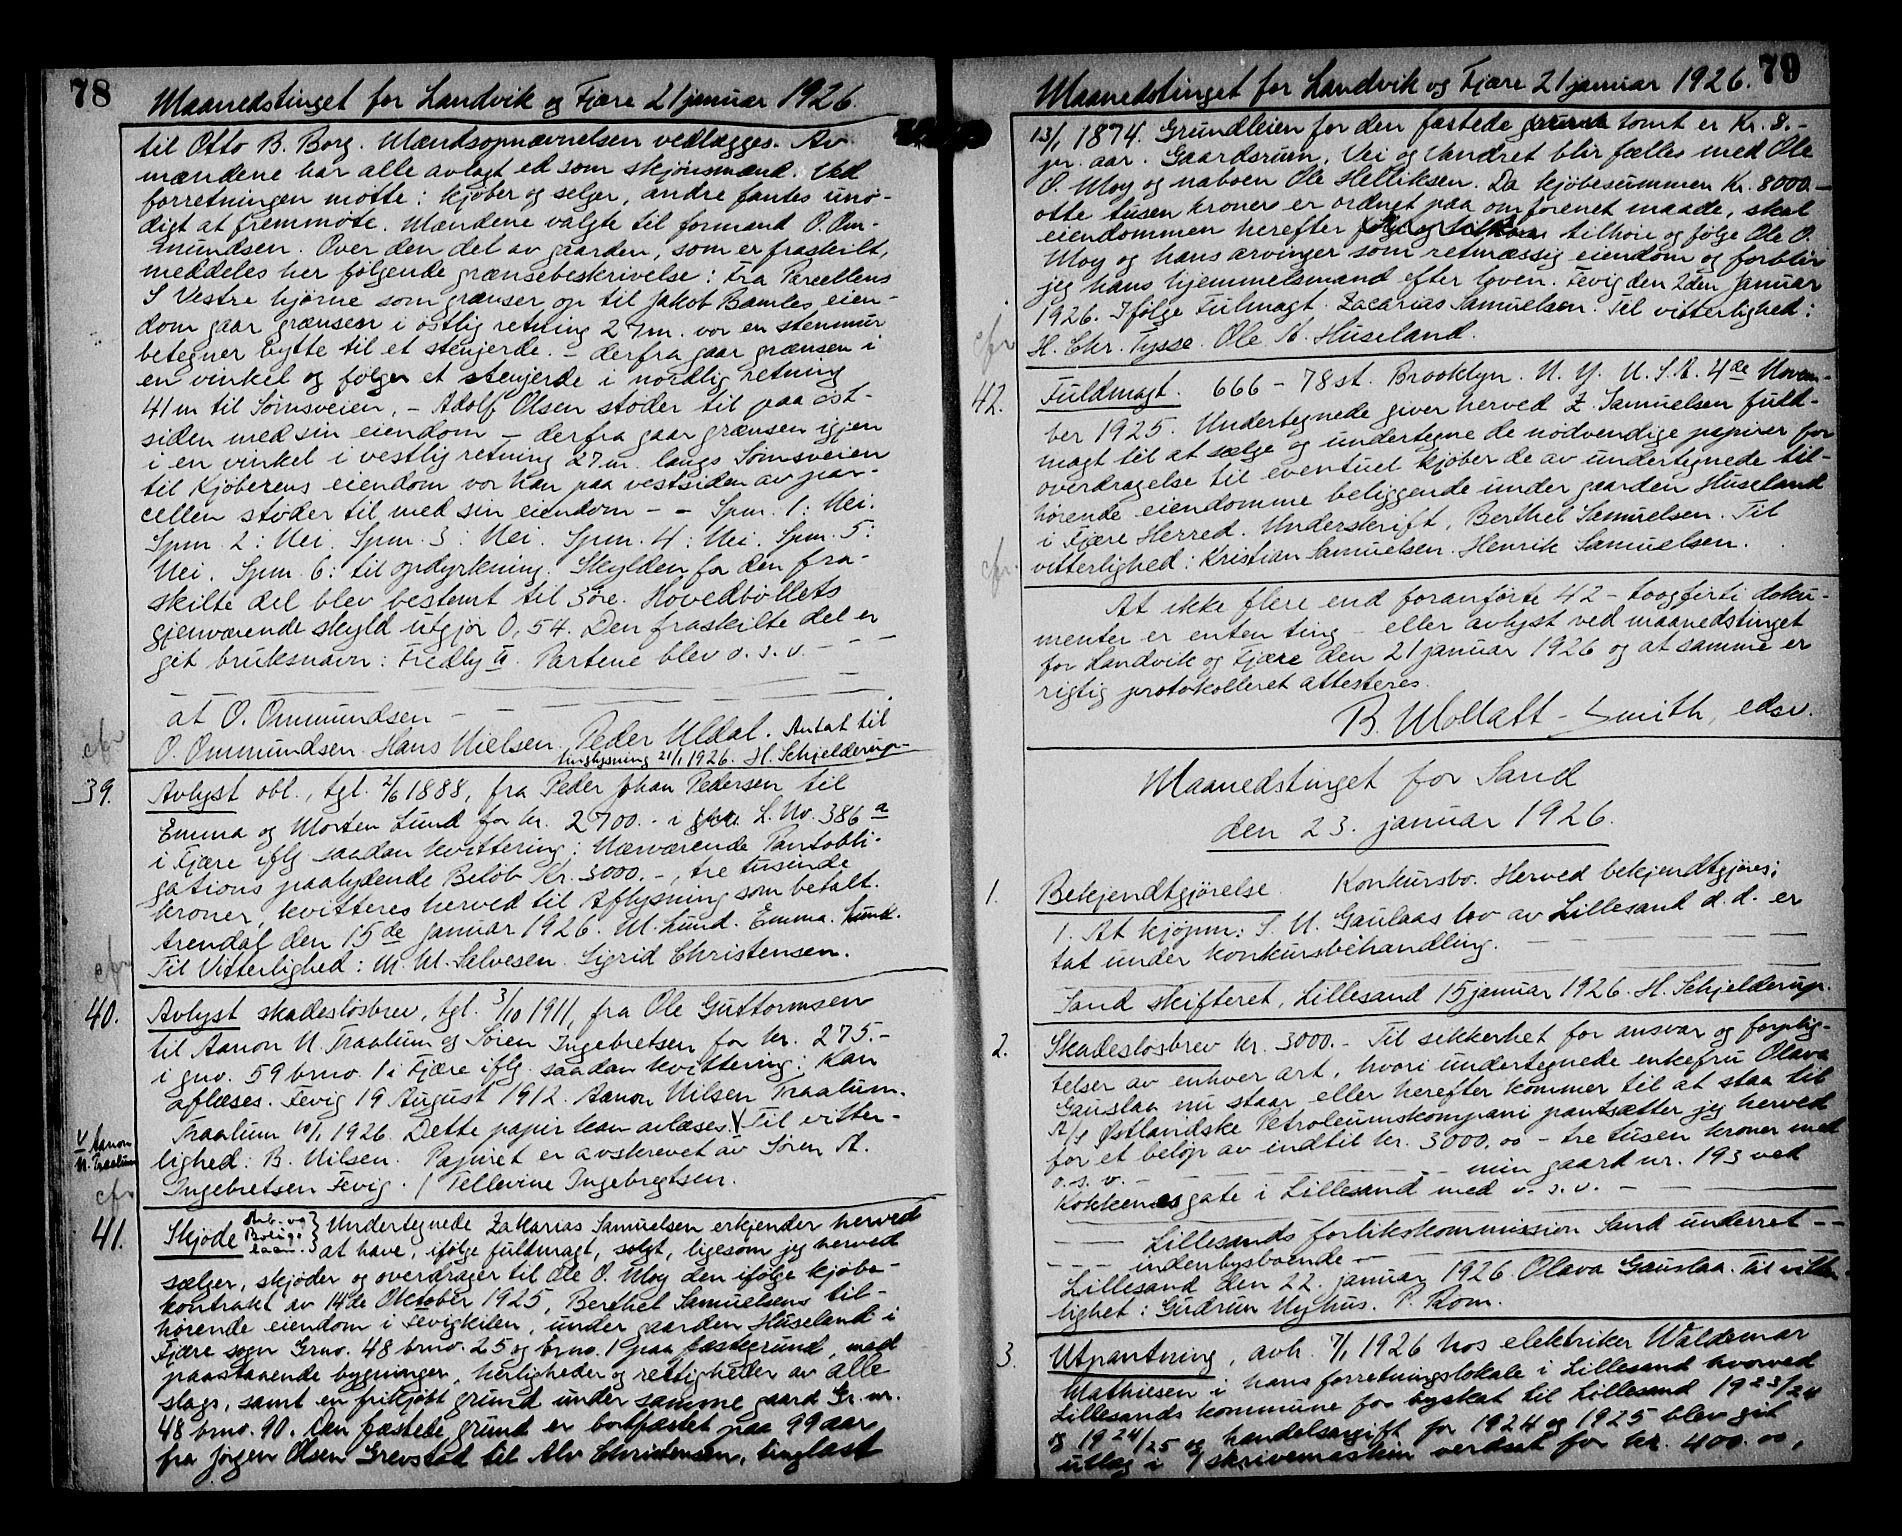 78
Maanedstinget for Landvik og Fjære 21 januar 1926.
til Otto B. Borg. Mændsopnævnelsen vedlægges. Av
mændene har alle avlagt ed som skjönsmænd. Ved
forretningen møtte: kjøber og selger, andre fantes unø-
digt at fremmøte. Mændene valgte til formand O. Om-
mundsen. Over den del av gaarden, som er fraskilt,
meddeles her følgende grænsebeskrivelse: Fra Parcellens
S Vestre hjørne som grænser op til Jakob Bamles eien-
dom gaar grænsen i østlig retning 27 m. vor en stenmur
betegner bytte til et stengjerde. - derfra gaar grænsen i
en vinkel og følger et stengjerde i nordlig retning
41 m til Sømsveien, - Adolf Olsen støder til paa øst-
siden med sin eiendom - derfra gaar grænsen igjen
i en vinkel i vestlig retning 27 m. langs Sømsveien
til Kjøberens eiendom vor han paa vestsiden av par-
cellen støder til med sin eiendom - - Spm. 1: Nei.
Spm. 2: Nei. Spm. 3: Nei. Spm. 4: Nei. Spm. 5:
Nei. Spm. 6: til opdyrkning. Skylden for den fra-
skilte del blev bestemt til 3 øre. Hovedbøllets
gjenværende skyld utgjør 0,54. Den fraskilte del er
git bruksnavn: Fredly II. Partene blev o. s. v. -
at O. Ommundsen -
cfr O. Ommundsen. Hans Nielsen. Peder Uldal. Antat til
tinglysning 21/1 1926. H. Schjelderup-
39. Avlyst obl., tgl. 2/6 1888, fra Peder Johan Pedersen til
Emma og Morten Lund for kr. 2700.- i L. No. 386 a
i Fjære iflg saadan kvittering: Nærværende Pantobli-
gations paalydende Beløb Kr. 3000.-, tre tusinde
kroner, kvitteres herved til Aflysning som betalt.
Arendal den 15de januar 1926. M. Lund. Emma Lund.
cfr Til Vitterlighed: M. M. Salvesen. Sigrid Christensen.
40. Avlyst skadesløsbrev, tgl. 3/10 1911, fra Ole Guttormsen
til Aanon N. Traalum og Søren Ingebretsen for kr. 275.-
i gno. 59 bno. 1 i Fjære iflg. saadan kvittering: Kan
aflæses. Fevig 19 August 1912. Aanon Nilsen Traalum.
V Aanon N. Traalum
Traalum 10/1 1926. Dette papir kan avlæses. V Til vitter-
lighed: B. Nilsen. Papiret er avskrevet av Søren A.
cfr Ingebretsen Fevig. / Tellevine Ingebregtsen.
41. Skjøde Arb. og Boligslaan. } Undertegnede Zakarias Samuelsen erkjender herved
at have, ifølge fuldmagt, solgt, ligesom jeg herved
sælger, skjøder og overdrager til Ole O. Moy den ifølge kjøbe-
kontrakt av 14de Oktober 1925, Berthel Samuelsens til-
hørende eiendom i Fevigkilen, under gaarden Huseland i
Fjære sogn Grno. 48 brno. 25 og brno. 19 paa fæstegrund, med
paastaaende bygninger, herligheder og rettigheder av alle
slags, samt en frikjøbt grund under samme gaard Gr. nr.
48 brno. 90. Den fæstede grund er bortfæstet paa 99 aar
fra Jørgen Olsen Grevstad til Alv Christensen, tinglæst
79
Maanedstinget for Landvik og Fjære 21 januar 1926.
13/1 1874. Grundleien for den fæstede tomt er Kr. 8.-
pr. aar. Gaardsrum, Vei og Vandret blir fælles med Ole
O. Moy og naboen Ole Helliksen. Da kjøbesummen Kr. 8000.-
otte tusen kroner er ordnet paa omforenet maade, skal
eiendommen herefter tilhøre og følge Ole O.
Moy og hans arvinger som retmæssig eiendom og forblir
jeg hans hjemmelsmand efter loven. Fevig den 2den Januar
1926. Ifølge Fulmagt. Zacarias Samuelsen. Til vitterlighed:
cfr H. Chr. Tysse. Ole K. Huseland.
42. Fuldmagt. 666 - 78 st. Brooklyn. N. Y. U. S. A. 4de Novem-
ber 1925. Undertegnede giver herved Z. Samuelsen fuld-
magt til at sælge og undertegne de nødvendige papirer for
overdragelse til eventuel kjøber de av undertegnede til-
hørende eiendomme beliggende under gaarden Huseland
i Fjære Herred. Underskrift, Berthel Samuelsen. Til
cfr. vitterlighed: Kristian Samuelsen. Henrik Samuelsen.
At ikke flere end foranførte 42 - toogførti doku-
menter er enten ting - eller avlyst ved maanedstinget
for Landvik og Fjære den 21 januar 1926 og at samme er
rigtig protokolleret attesteres.
B. Mollatt-Smith, edsv.
Maanedstinget for Sand
den 23. januar 1926.
1. Bekjendtgjørelse. Konkursbo. Herved bekjendtgjøres:
1. At kjøpm: S. N. Gauslaas bo av Lillesand d. d. er
tat under konkursbehandling.
Sand skifteret, Lillesand 15 januar 1926. H. Schjelderup.
2. Skadesløsbrev kr. 3000.- Til sikkerhet for ansvar og forplig-
telser av enhver art, hvori undertegnede enkefru Olava
Gauslaa nu staar eller herefter kommer til at staa til
A/S Østlandske Petroleumskompani pantsætter jeg herved
for et beløp av indtil kr. 3000,00 - tre tusen kroner med
o. s. v. - min gaard nr. 193 ved
Kokkenesgate i Lillesand med o. s. v. -
Lillesands forlikskommission Sand underret - -
indenbysboende -
Lillesand den 22. januar 1926. Olava Gauslaa. Til vitter-
lighet: Gudrun Nyhus. P. Rom.
3. Utpantning, avh. 7/1 1926 hos elektriker Waldemar
Mathiesen i hans forretningslokale i Lillesand hvorved
Lillesands kommune for byskat til Lillesand 1923/24
og 1924/25 og handelsavgift for 1924 og 1925 blev git
utlæg i 1 skrivemaskin verdsat for kr. 400.00,